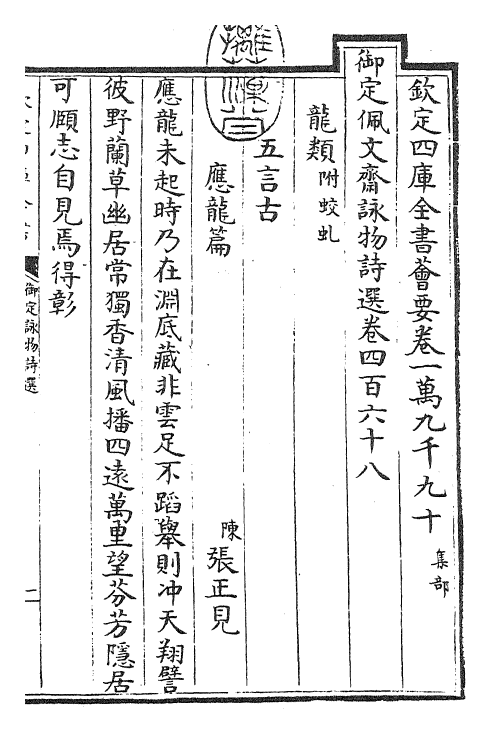 欽定四庫全書薈要卷一萬九千九十 集部
御定佩文齋詠物詩選卷四百六十八
龍類附蛟虬
五言古
應龍篇 陳 張正見
應龍未起時乃在淵底藏非雲足不蹈舉則冲天翔譬
彼野蘭草幽居常獨香清風播四遠萬里望芬芳隱居
可頤志自見焉得彰
御定詠物詩選